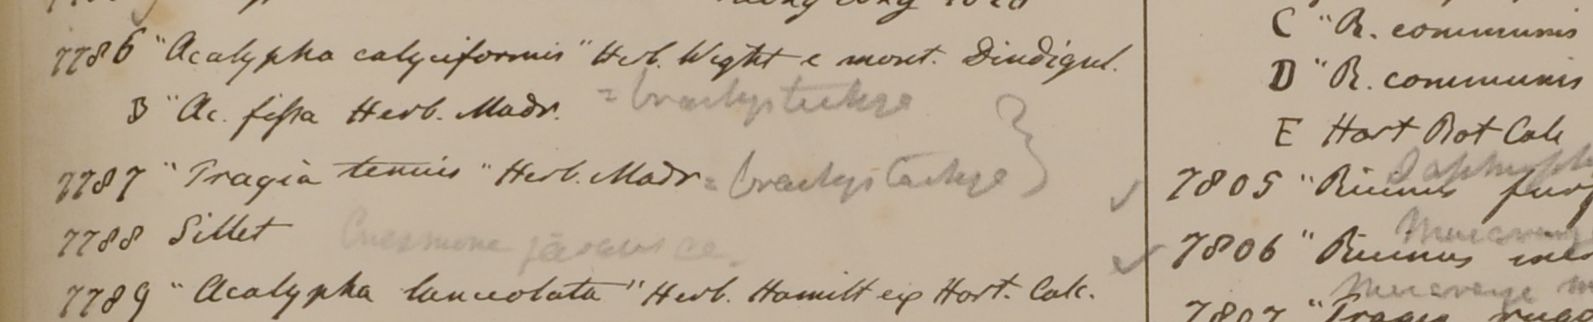 7786 "Acalypha calyciformis" Herb. Wight e mont. Dindigul.
B "Ac. fissa Herb. Madr. = brachystachya
7787 "Tragia tenuis" Herb. Madr = brachystachya }
7788 Sillet Cnesmone javanica
7789 "Acalypha lanceolata" Herb. Hamilt ex Hort. Calc.
C "R. communis
D "R. communis
E Hort Bot Calc
7805 "Ricinus
7806 "Ricinus
7807 "Tragia